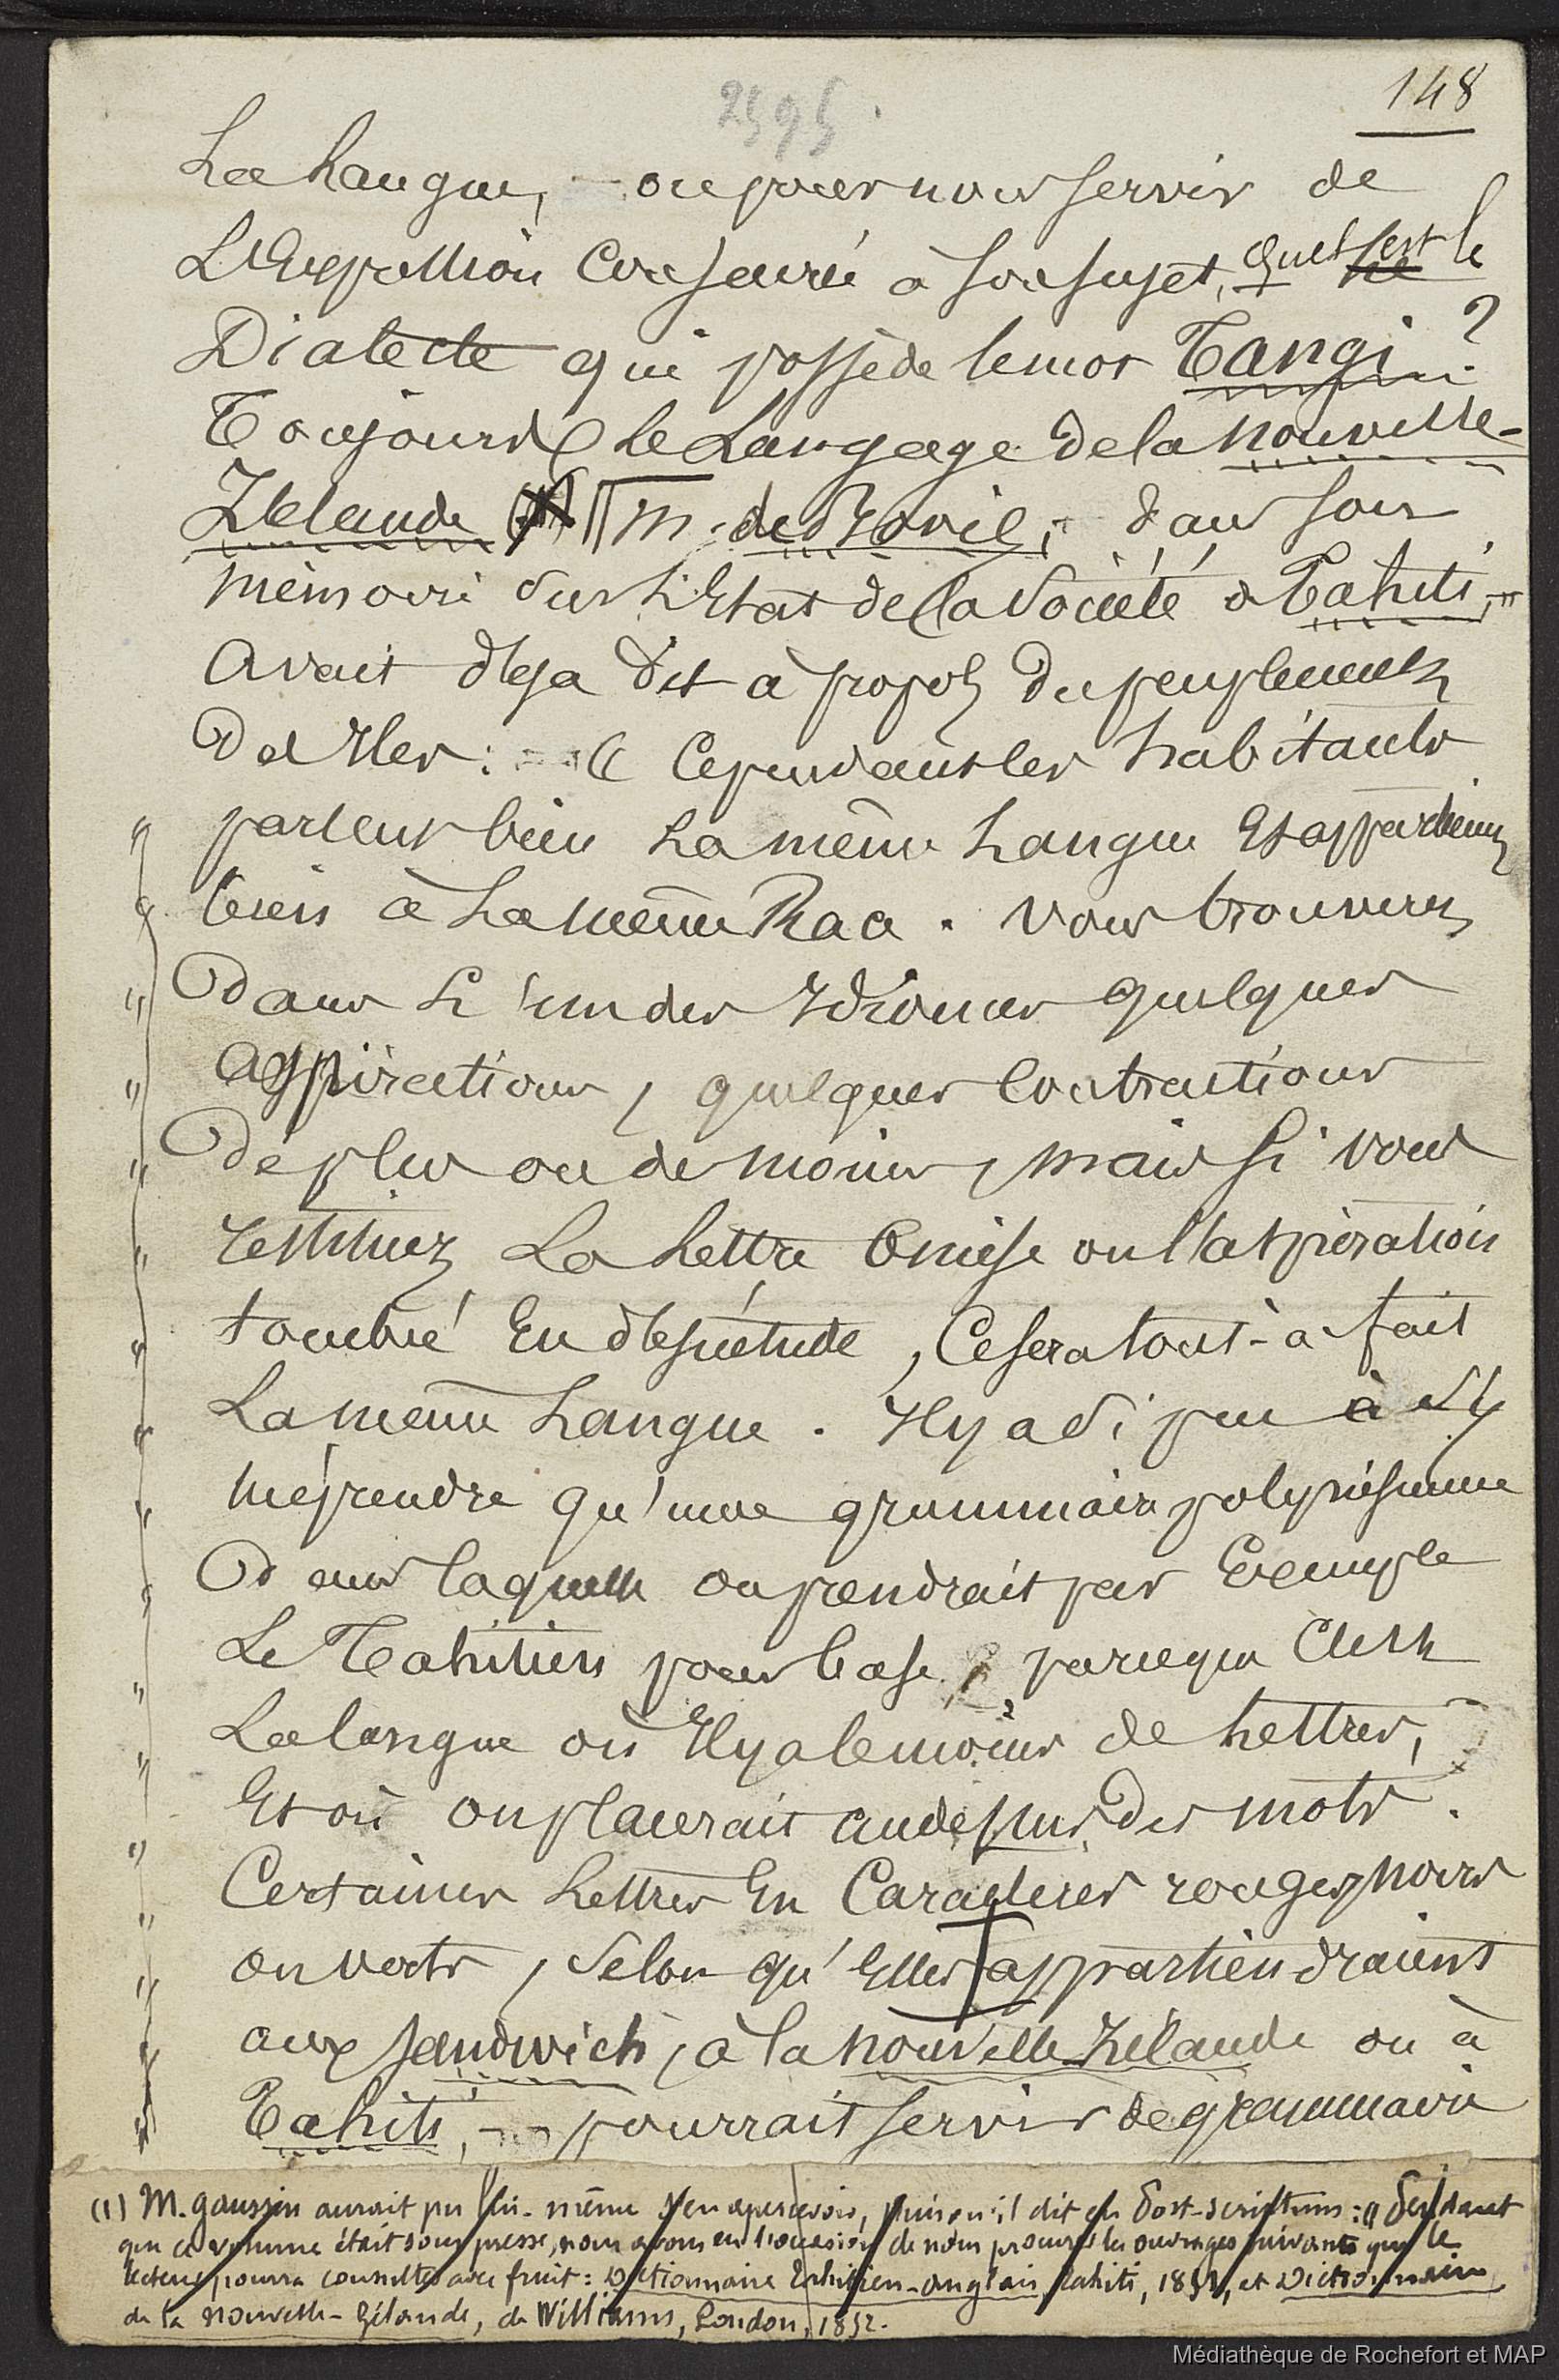 148
2595.
La Langue, ou pour nous servir de
L'Expression Consacrée à son sujet, quel est le
Dialecte qui possède le mot Tangi ?
Toujours le Langage de la nouvelle-
Zélande M. de Bovis, dans son
mémoire sur L'Etat de la Société à Tahiti,
avait déja dit à propos du peuplement
des Iles : « Cependant les habitants
parlent bien La même Langue Et appartiennent
bien à La même Race. Vous trouverez
Dans L'un des Idiomes quelques
aspirations, quelques contractions
De plus ou de moins, mais si vous
restituez La Lettre Omise ou l'aspiration
tombée En désuétude, Ce sera tout-à-fait
La même Langue. Il y a si peu à s'y
méprendre qu'une grammaire polynésienne
Dans laquelle on prendrait par Exemple
Le Tahitien pour base, parceque C'est
La langue où Il y a le moins de Lettres,
Et où on placerait au dessus des mots
Certaines Lettres En Caractères rouges, noirs
ou verts, selon qu'Elles appartiendraient
aux Sandwich, à la nouvelle-Zélande ou à
Tahiti, pourrait servir de grammaire
(1) M. gaussin aurait pu lui-même s'en apercevoir, puisqu'il dit en Post-scriptum : « Pendant
que ce volume était sous presse, nous avons eu l'occasion de nous procurer les ouvrages suivants que le
lecteur pourra consulter avec fruit : Dictionnaire Tahitien-anglais, Tahiti, 1851, et Dictionnaire
de la Nouvelle-Zélande, de Williams, London, 1852.
Médiathèque de Rochefort et MAP